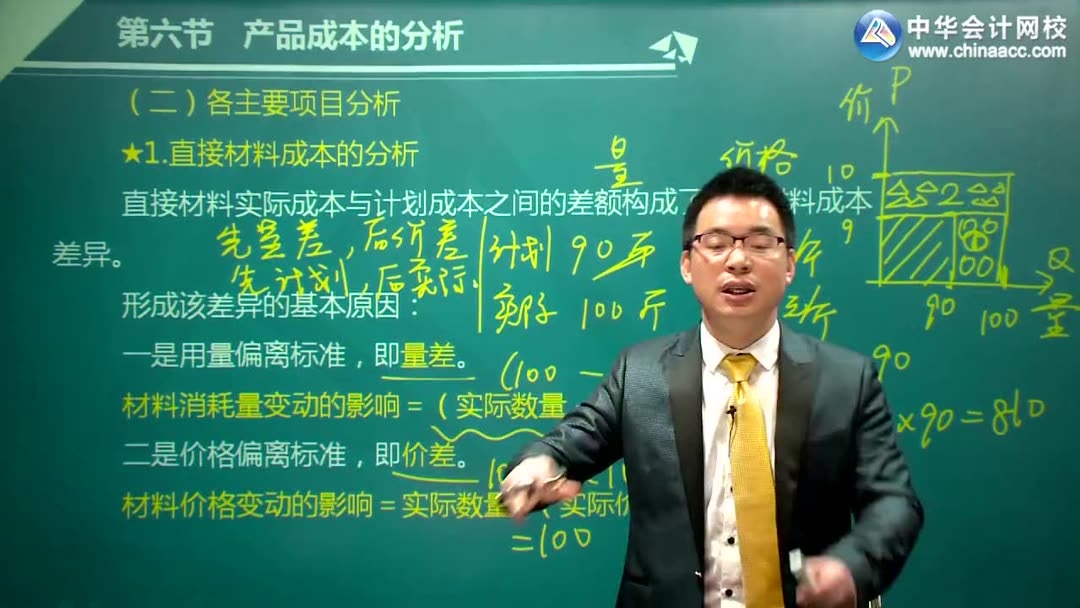 第六节 产品成本的分析
中华会计网校
www.chinaacc.com
（二）各主要项目分析
★1.直接材料成本的分析
量 价格
直接材料实际成本与计划成本之间的差额构成了 料成本
差异。
先量差，后价差
先计划，后实际.
计划 90斤
实际 100斤
形成该差异的基本原因：
一是用量偏离标准，即量差。
(100 — 90
材料消耗量变动的影响＝（实际数量
×90=810
二是价格偏离标准，即价差。
材料价格变动的影响＝实际数量 （实际价
=100
价 P
10
9
2
Q
90 100 量